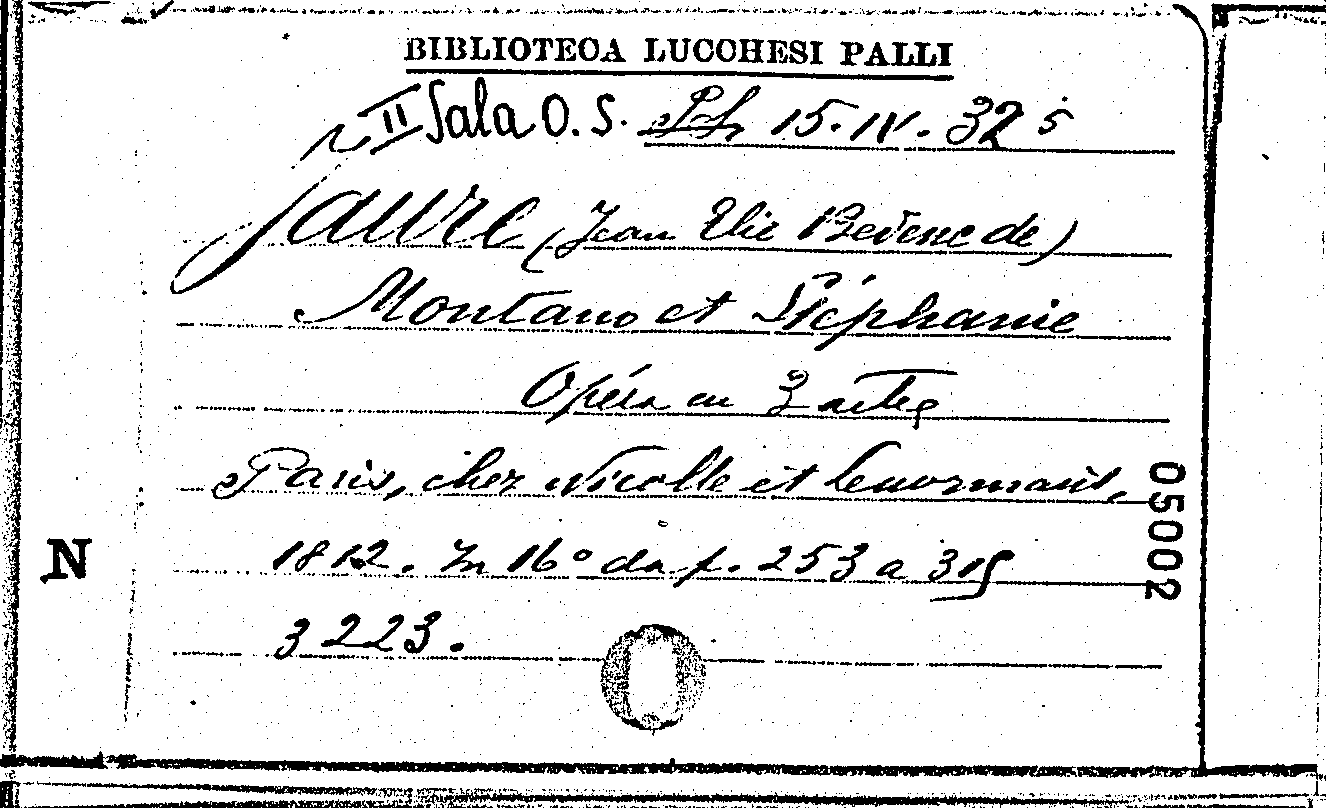 BIBLIOTECA LUCCHESI PALLI
II Sala O. S. 15. IV. 32 5
Jaure (Jean Elie Bedene de)
Montano et Stéphanie
Opéra en 3 actes
Paris, chez Nicolle et Lenormant,
1812. In 16° da p. 253 a 315
3223.
N
05002